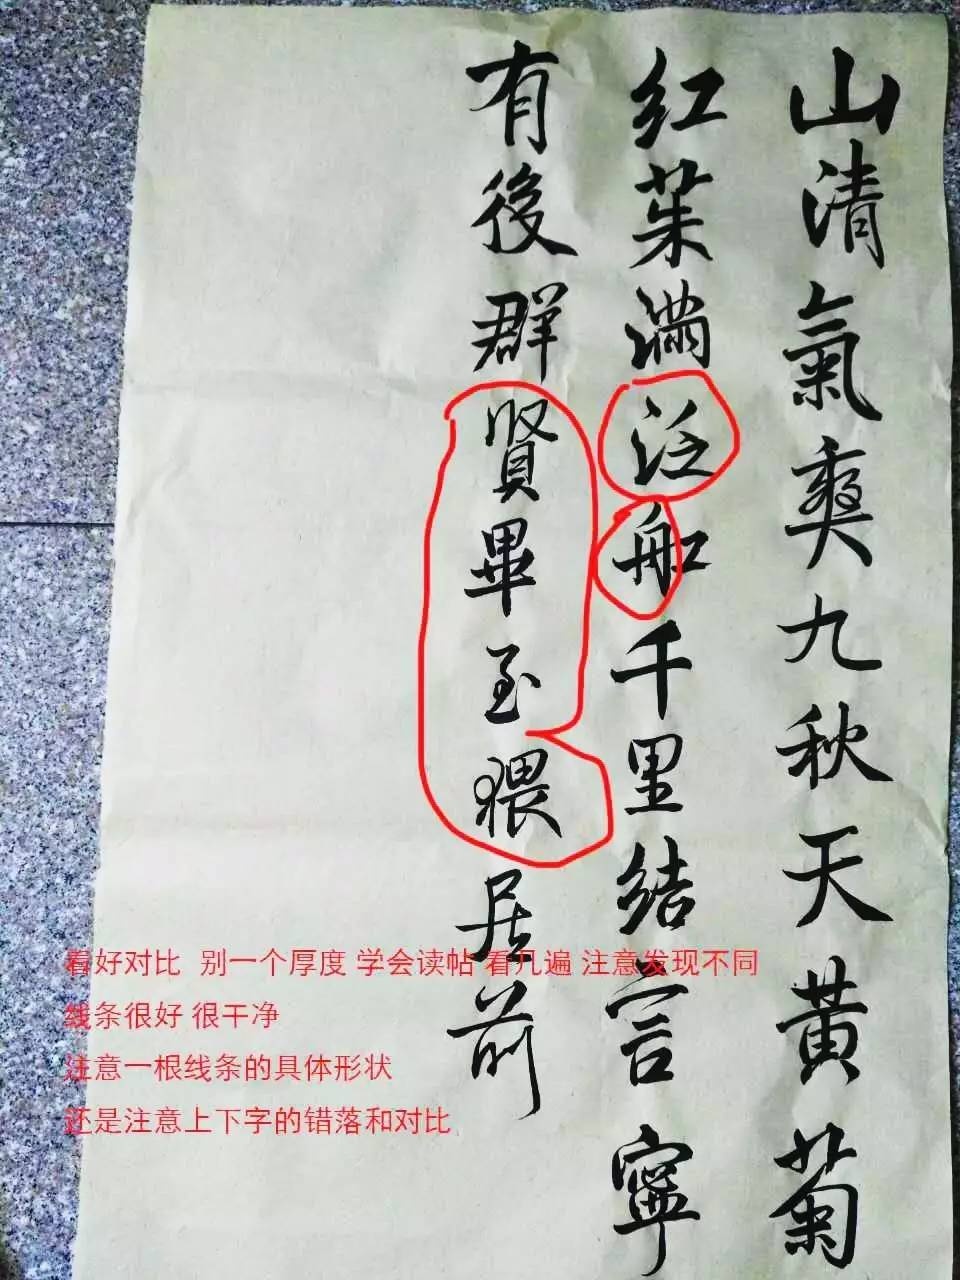 山清氣爽九秋天黃菊
紅茱滿泛船千里結言寧
有後群賢畢至猥居前
看好对比 别一个厚度 学会读帖 看几遍 注意发现不同
线条很好 很干净
注意一根线条的具体形状
还是注意上下字的错落和对比